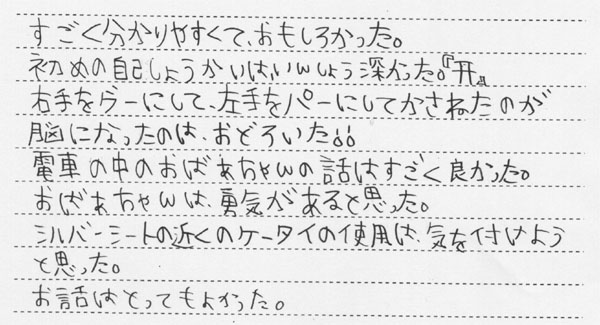 すごく分かりやすくて、おもしろかった。
初めの自己しょうかいは、いんしょう深かった。『开』
右手をグーにして、左手をパーにしてかさねたのが
脳になったのは、おどろいた!!
電車の中のおばあちゃんの話はすごく良かった。
おばあちゃんは、勇気があると思った。
シルバーシートの近くのケータイの使用は、気を付けよう
と思った。
お話はとってもよかった。